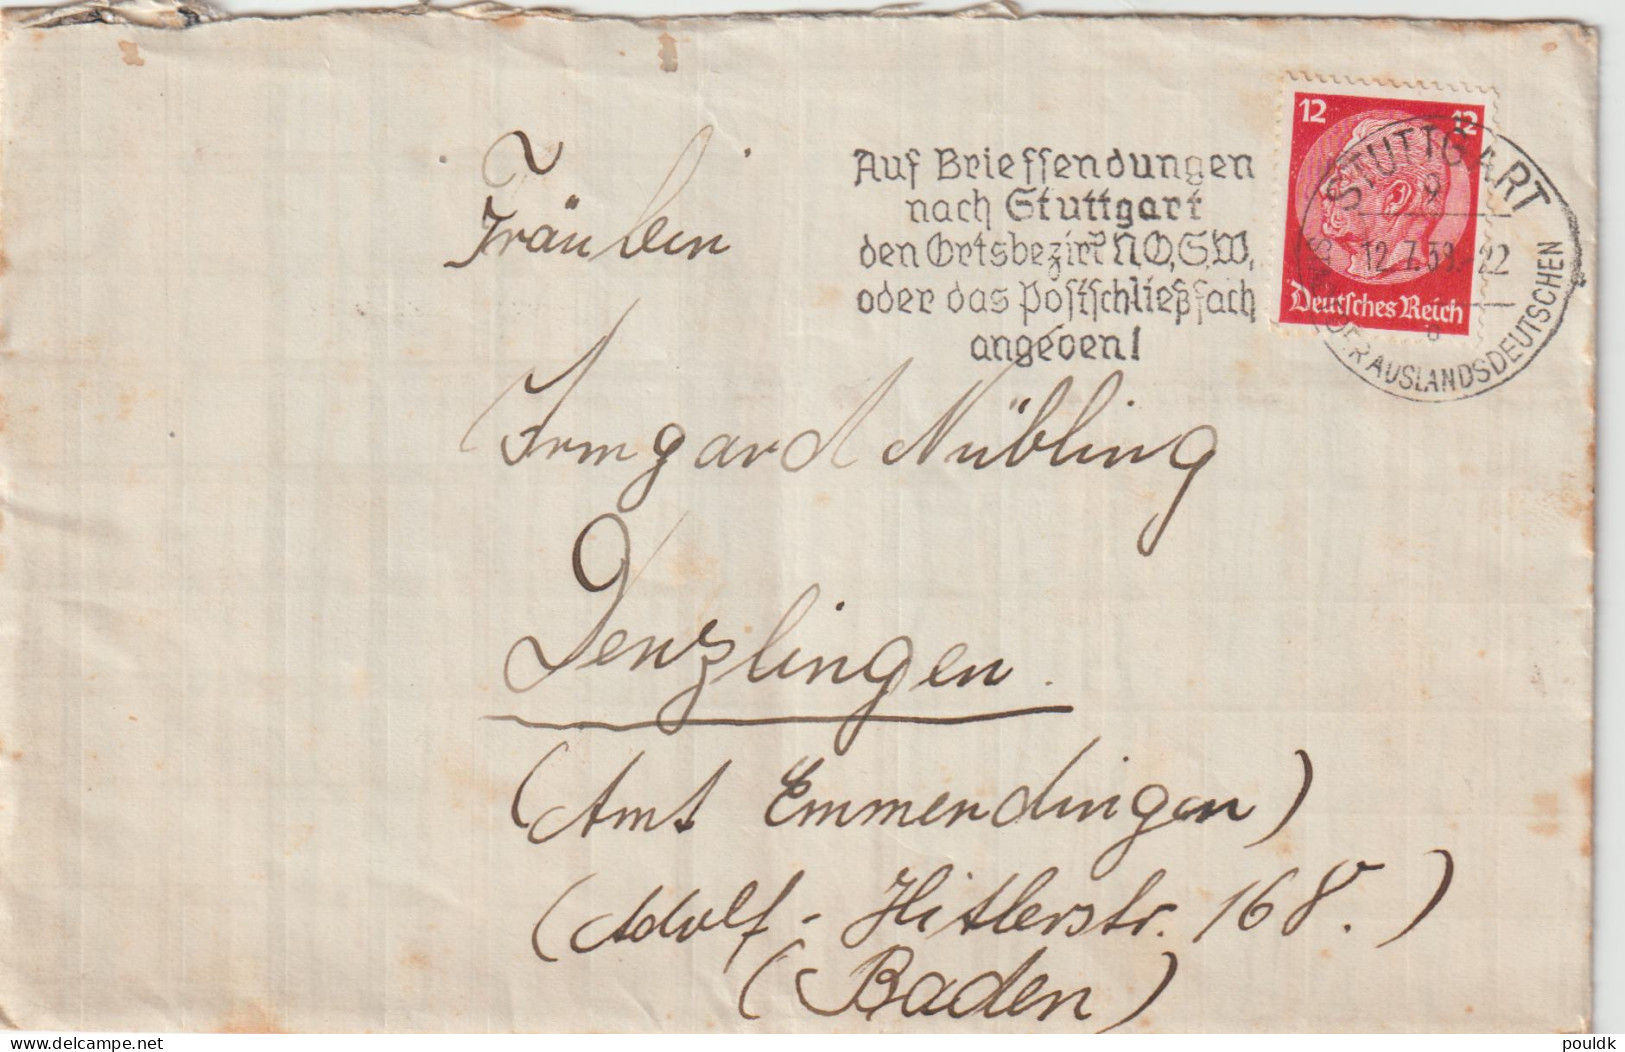 12 12
Deutsches Reich
STUTTGART
9
12.7.39.-22
DER AUSLANDSDEUTSCHEN
Auf Briefsendungen
nach Stuttgart
den Ortsbezirk N,O,S,W,
oder das Postschließfach
angeben!
Fräulein
Irmgard Nübling
Denzlingen.
(Amt Emmendingen)
(Adolf-Hitlerstr. 168.)
(Baden)
pouldk